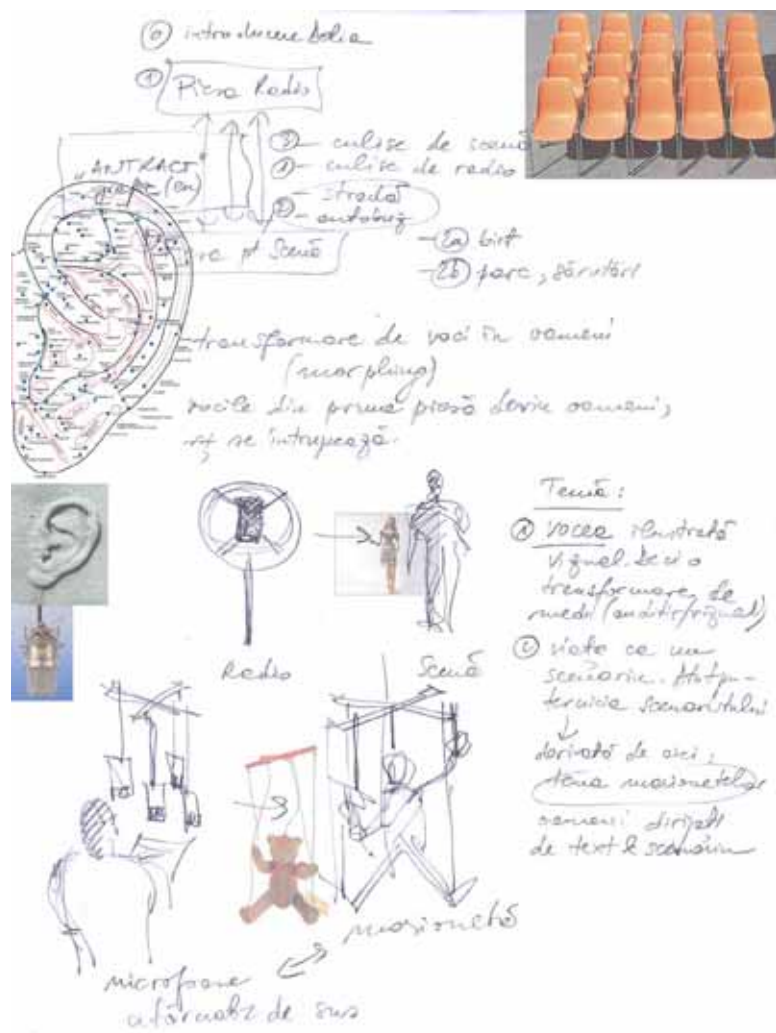 0 introducere
1 Piesa Radio
3 - culise de scenă
1 - culise de radio
"ANTRACT"
2 - stradă
- autobuz
pt Scenă
- 2a birt
- 2b parc, sărutări
- transformare de voci în oameni
(morphing)
vocile din prima piesă devin oameni,
se întrupează.
Radio
Scenă
Temă:
1 vocea ilustrată
vizual. Deci o
transformare de
medii (auditiv/vizual)
2 viața ca un
scenariu. Atotpu-
ternicia scenaristului
derivată de aici,
tema marionetelor
oameni dirijați
de text & scenariu
marionetă
microfoane
atârnate de sus